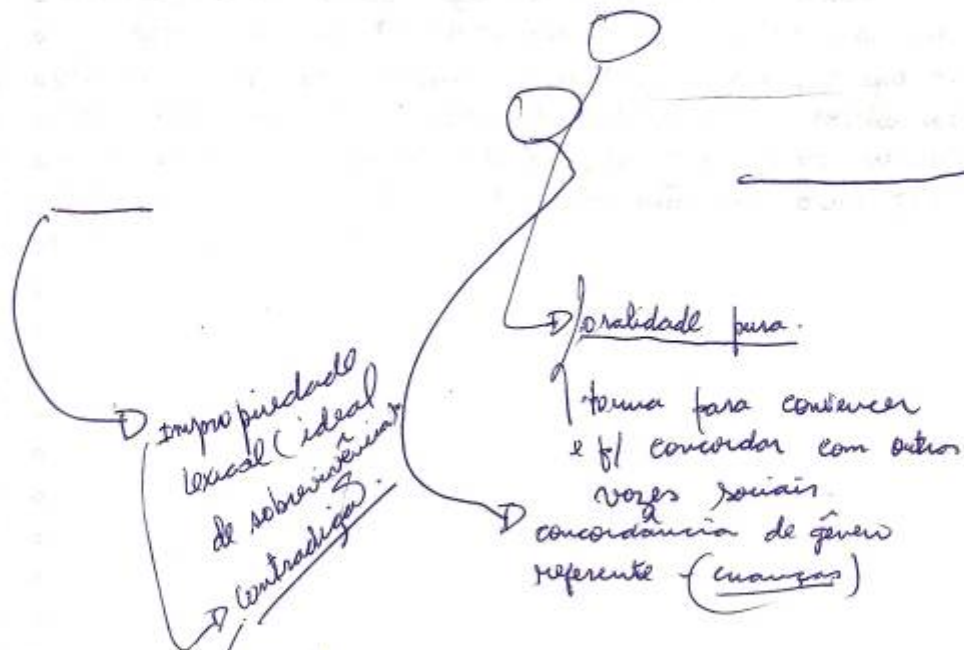 Impropriedade
lexical (ideal
de sobrevivência)
contradição.
oralidade pura.
forma para convencer
e p/ concordar com outros
vozes sociais.
concordância de gênero
referente (crianças)